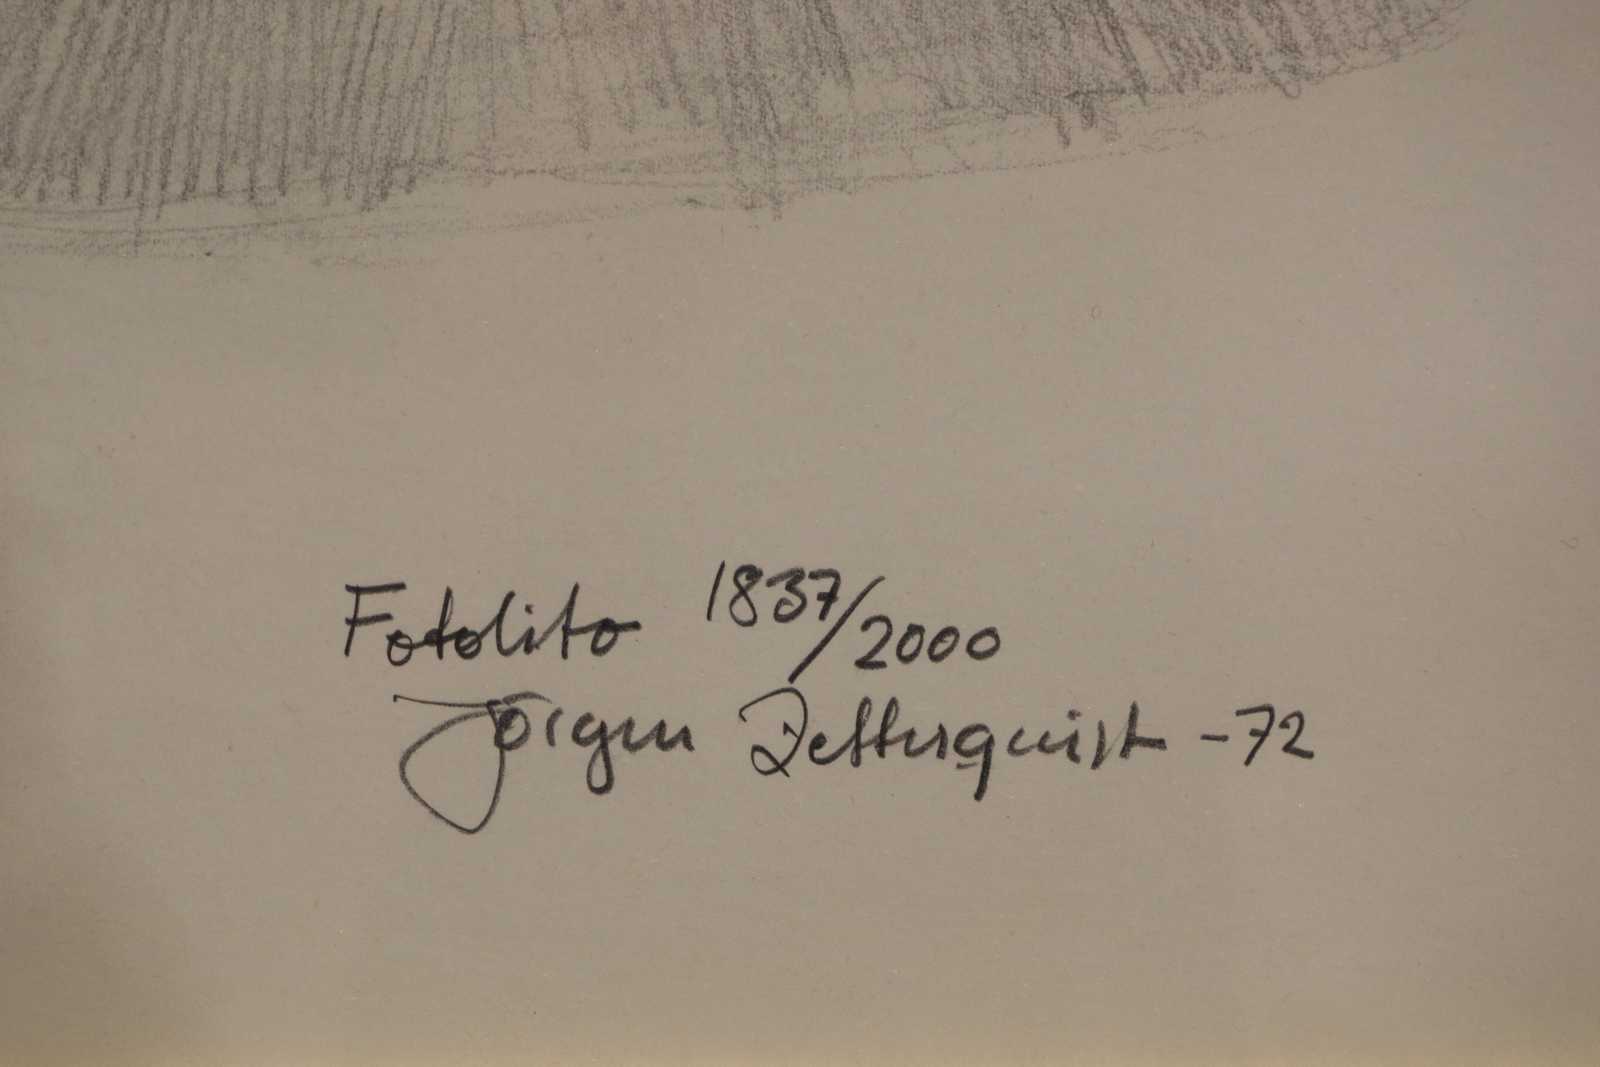 Fotolito 1837/2000
Jörgen Zetterquist -72